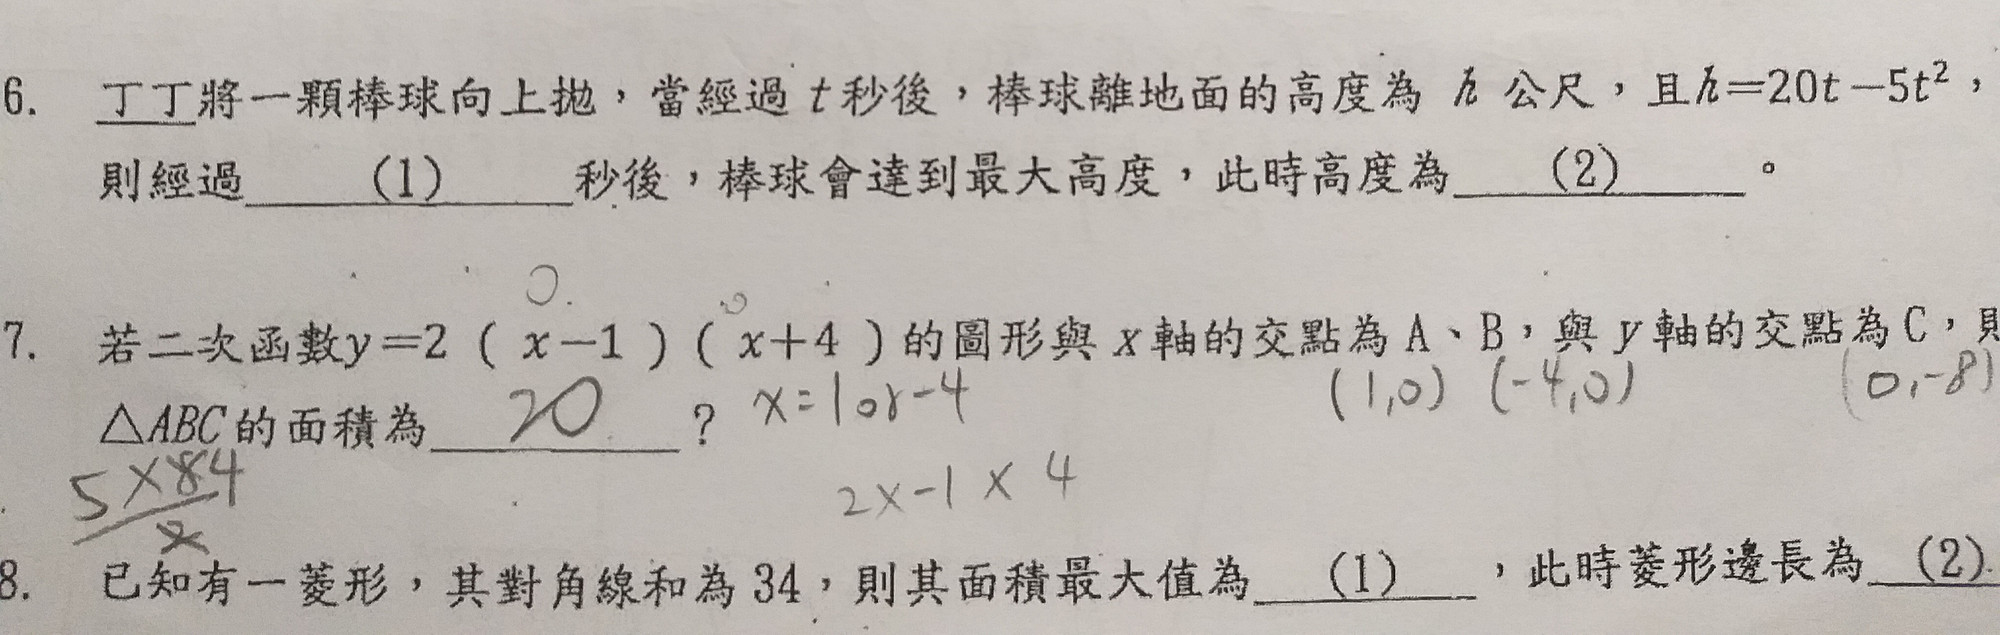 6. 丁丁將一顆棒球向上拋，當經過 t 秒後，棒球離地面的高度為 h 公尺，且h＝20t－5t²，
則經過 (1) 秒後，棒球會達到最大高度，此時高度為 (2) 。
0. 0
7. 若二次函數y＝2（x－1）（x＋4）的圖形與 x 軸的交點為 A、B，與 y 軸的交點為 C，則
x=1 or -4 (1,0) (-4,0) (0,-8)
△ABC的面積為 20 ?
5×8 4
2
2x-1x4
8. 已知有一菱形，其對角線和為 34，則其面積最大值為 (1) ，此時菱形邊長為 (2).